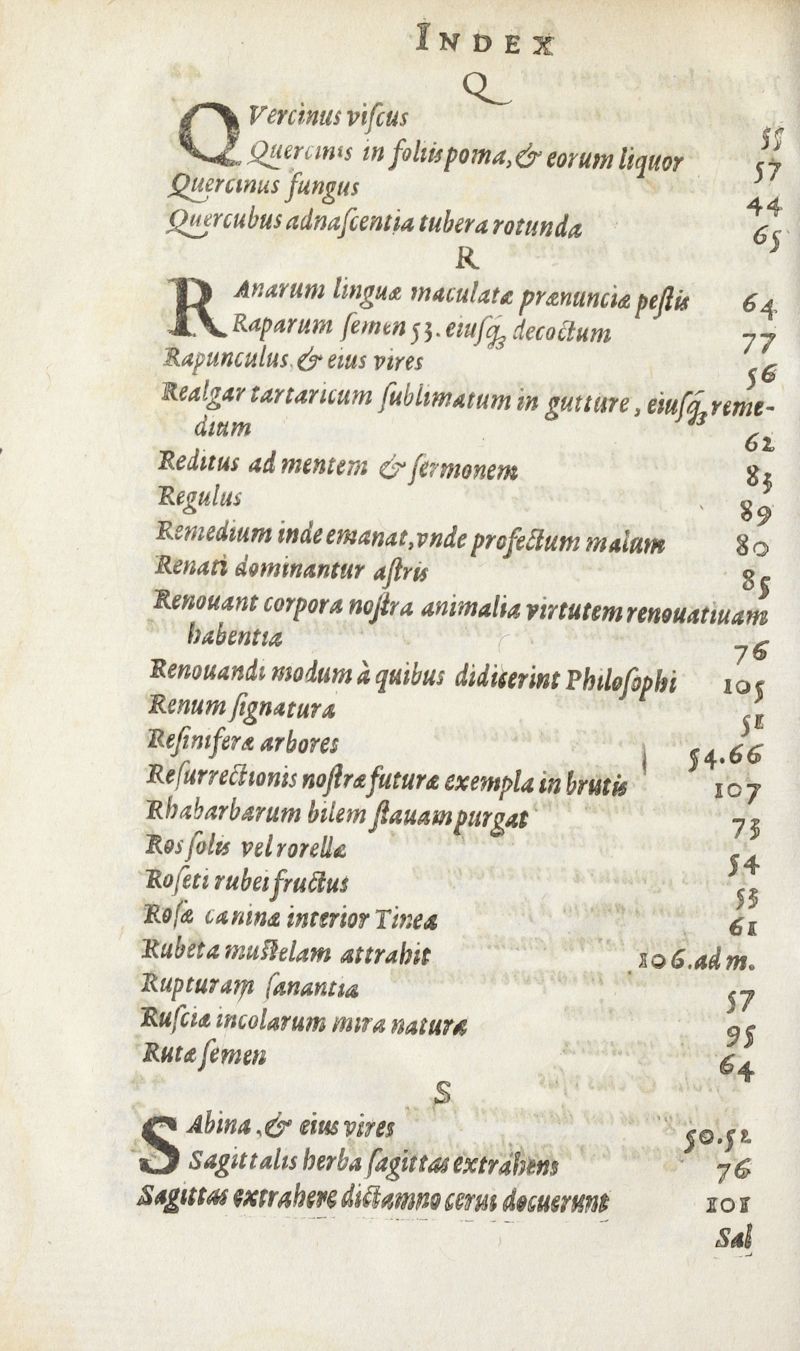 INDEX
Q
QVercinus viſcus 55
Quercinis in foliis poma, & eorum liquor 57
Quercinus fungus 44
Quercubus adnaſcentia tubera rotunda 65
R
RAnarum linguæ maculatæ prænunciæ peſtis 64
Raparum ſemen 53. eiuſq; decoctum 77
Rapunculus, & eius vires 56
Realgar tartaricum ſublimatum in gutture, eiuſq; reme-
dium 62
Reditus ad mentem & ſermonem 83
Regulus 89
Remedium inde emanat, vnde profectum malum 80
Renati dominantur aſtris 85
Renouant corpora noſtra animalia virtutem renouatiuam
habentia 76
Renouandi modum à quibus didicerint Philoſophi 105
Renum ſignatura 51
Reſiniferæ arbores 54.66
Reſurrectionis noſtræ futuræ exempla in brutis 107
Rhabarbarum bilem flauam purgat 73
Ros ſolis vel rorella 54
Roſeti rubei fructus 53
Roſæ caninæ interior Tinea 61
Rubeta muſtelam attrahit 106.ad m.
Rupturam ſanantia 57
Ruſciæ incolarum mira natura 95
Rutæ ſemen 64
S
SAbina, & eius vires 50.52
Sagittalis herba ſagittas extrahens 76
Sagittas extrahere dictamno cerui docuerunt 101
Sal